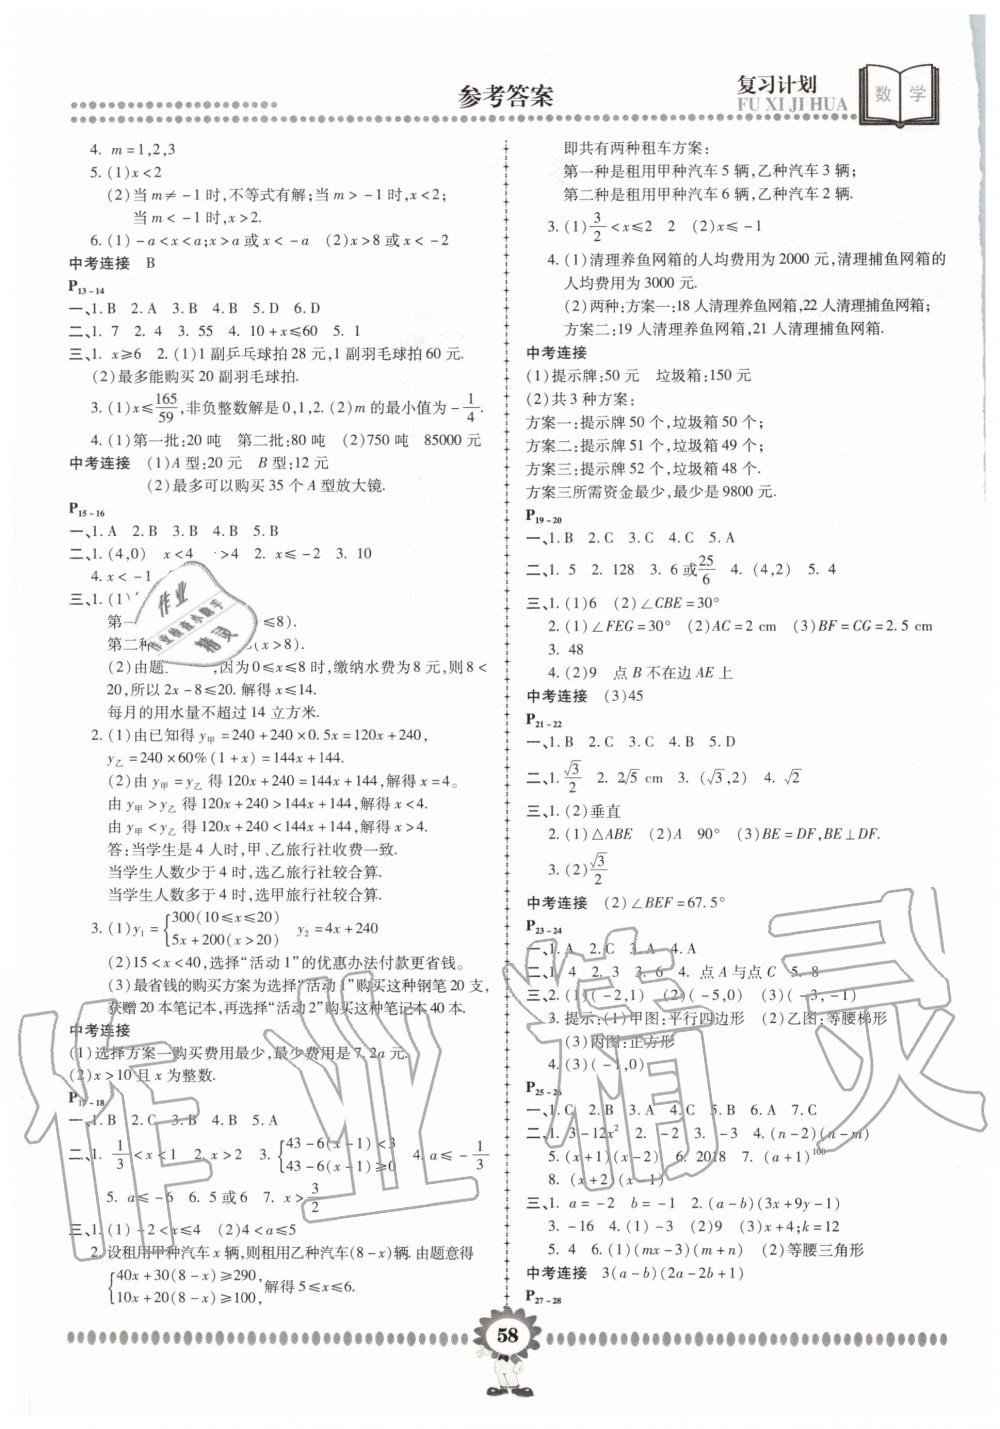 参考答案
复习计划
FU XI JI HUA
数学
4. m=1,2,3
5. (1)x<2
(2)当m≠-1时,不等式有解;当m>-1时,x<2;
当m<-1时,x>2.
6. (1)-a<x<a;x>a或x<-a (2)x>8或x<-2
中考连接 B
P13~14
一、1. B 2. A 3. B 4. B 5. D 6. D
二、1. 7 2. 4 3. 55 4. 10+x≤60 5. 1
三、1. x≥6 2. (1)1副乒乓球拍28元,1副羽毛球拍60元.
(2)最多能购买20副羽毛球拍.
3. (1)x≤165/59,非负整数解是0,1,2. (2)m的最小值为-1/4.
4. (1)第一批:20吨 第二批:80吨 (2)750吨 85000元
中考连接 (1)A型:20元 B型:12元
(2)最多可以购买35个A型放大镜.
P15~16
一、1. A 2. B 3. B 4. B 5. B
二、1. (4,0) x<4 >4 2. x≤-2 3. 10
4. x<-1
三、1. (1)
第一 ≤8).
第二种 (x>8).
(2)由题 ,因为0≤x≤8时,缴纳水费为8元,则8<
20,所以2x-8≤20. 解得x≤14.
每月的用水量不超过14立方米.
2. (1)由已知得y甲=240+240×0.5x=120x+240,
y乙=240×60%(1+x)=144x+144.
(2)由y甲=y乙得120x+240=144x+144,解得x=4。
由y甲>y乙得120x+240>144x+144,解得x<4.
由y甲<y乙得120x+240<144x+144,解得x>4.
答:当学生是4人时,甲、乙旅行社收费一致.
当学生人数少于4时,选乙旅行社较合算.
当学生人数多于4时,选甲旅行社较合算.
3. (1)y1={300(10≤x≤20) 5x+200(x>20) y2=4x+240
(2)15<x<40,选择“活动1”的优惠办法付款更省钱。
(3)最省钱的购买方案为选择“活动1”购买这种钢笔20支,
获赠20本笔记本,再选择“活动2”购买这种笔记本40本.
中考连接
(1)选择方案一购买费用最少,最少费用是7.2a元.
(2)x>10且x为整数.
P17~18
一、1. B 2. C 3. B 4. B 5. A
二、1. 1/3<x<1 2. x>2 3. {43-6(x-1)<3 43-6(x-1)≥0 4. a≤-1/3
5. a≤-6 6. 5或6 7. x>3/2
三、1. (1)-2<x≤4 (2)4<a≤5
2. 设租用甲种汽车x辆,则租用乙种汽车(8-x)辆. 由题意得
{40x+30(8-x)≥290, 10x+20(8-x)≥100, 解得5≤x≤6.
即共有两种租车方案:
第一种是租用甲种汽车5辆,乙种汽车3辆;
第二种是租用甲种汽车6辆,乙种汽车2辆.
3. (1)3/2<x≤2 2 (2)x≤-1
4. (1)清理养鱼网箱的人均费用为2000元,清理捕鱼网箱的
人均费用为3000元.
(2)两种:方案一:18人清理养鱼网箱,22人清理捕鱼网箱;
方案二:19人清理养鱼网箱,21人清理捕鱼网箱.
中考连接
(1)提示牌:50元 垃圾箱:150元
(2)共3种方案:
方案一:提示牌50个,垃圾箱50个;
方案二:提示牌51个,垃圾箱49个;
方案三:提示牌52个,垃圾箱48个.
方案三所需资金最少,最少是9800元.
P19~20
一、1. B 2. C 3. C 4. C 5. A
二、1. 5 2. 128 3. 6或25/6 4. (4,2) 5. 4
三、1. (1)6 (2)∠CBE=30°
2. (1)∠FEG=30° (2)AC=2 cm (3)BF=CG=2.5 cm
3. 48
4. (2)9 点B不在边AE上
中考连接 (3)45
P21~22
一、1. B 2. C 3. C 4. B 5. D
二、1. √3/2 2. 2√5 cm 3. (√3,2) 4. √2
三、1. (2)垂直
2. (1)△ABE (2)A 90° (3)BE=DF,BE⊥DF.
3. (2)√3/2
中考连接 (2)∠BEF=67.5°
P23~24
一、1. A 2. C 3. A 4. A
二、1. 4 2. 3 3. 6 4. 点A与点C 5. 8
三、2. (1)(-2,1) (2)(-5,0) (3)(-3,-1)
3. 提示:(1)甲图:平行四边形 (2)乙图:等腰梯形
(3)丙图:正方形
4. (3)(-1,0)
P25~26
一、1. C 2. B 3. A 4. C 5. B 6. A 7. C
二、1. 3-12x² 2. -2 3. -3 4. (n-2)(n-m)
5. (x+1)(x-2) 6. 2018 7. (a+1)¹⁰⁰
8. (x+2)(x-1)
三、1. a=-2 b=-1 2. (a-b)(3x+9y-1)
3. -16 4. (1)-3 (2)9 (3)x+4;k=12
5. 4 6. (1)(mx-3)(m+n) (2)等腰三角形
中考连接 3(a-b)(2a-2b+1)
P27~28
58
作业
作业检查小助手
精灵
作业精灵